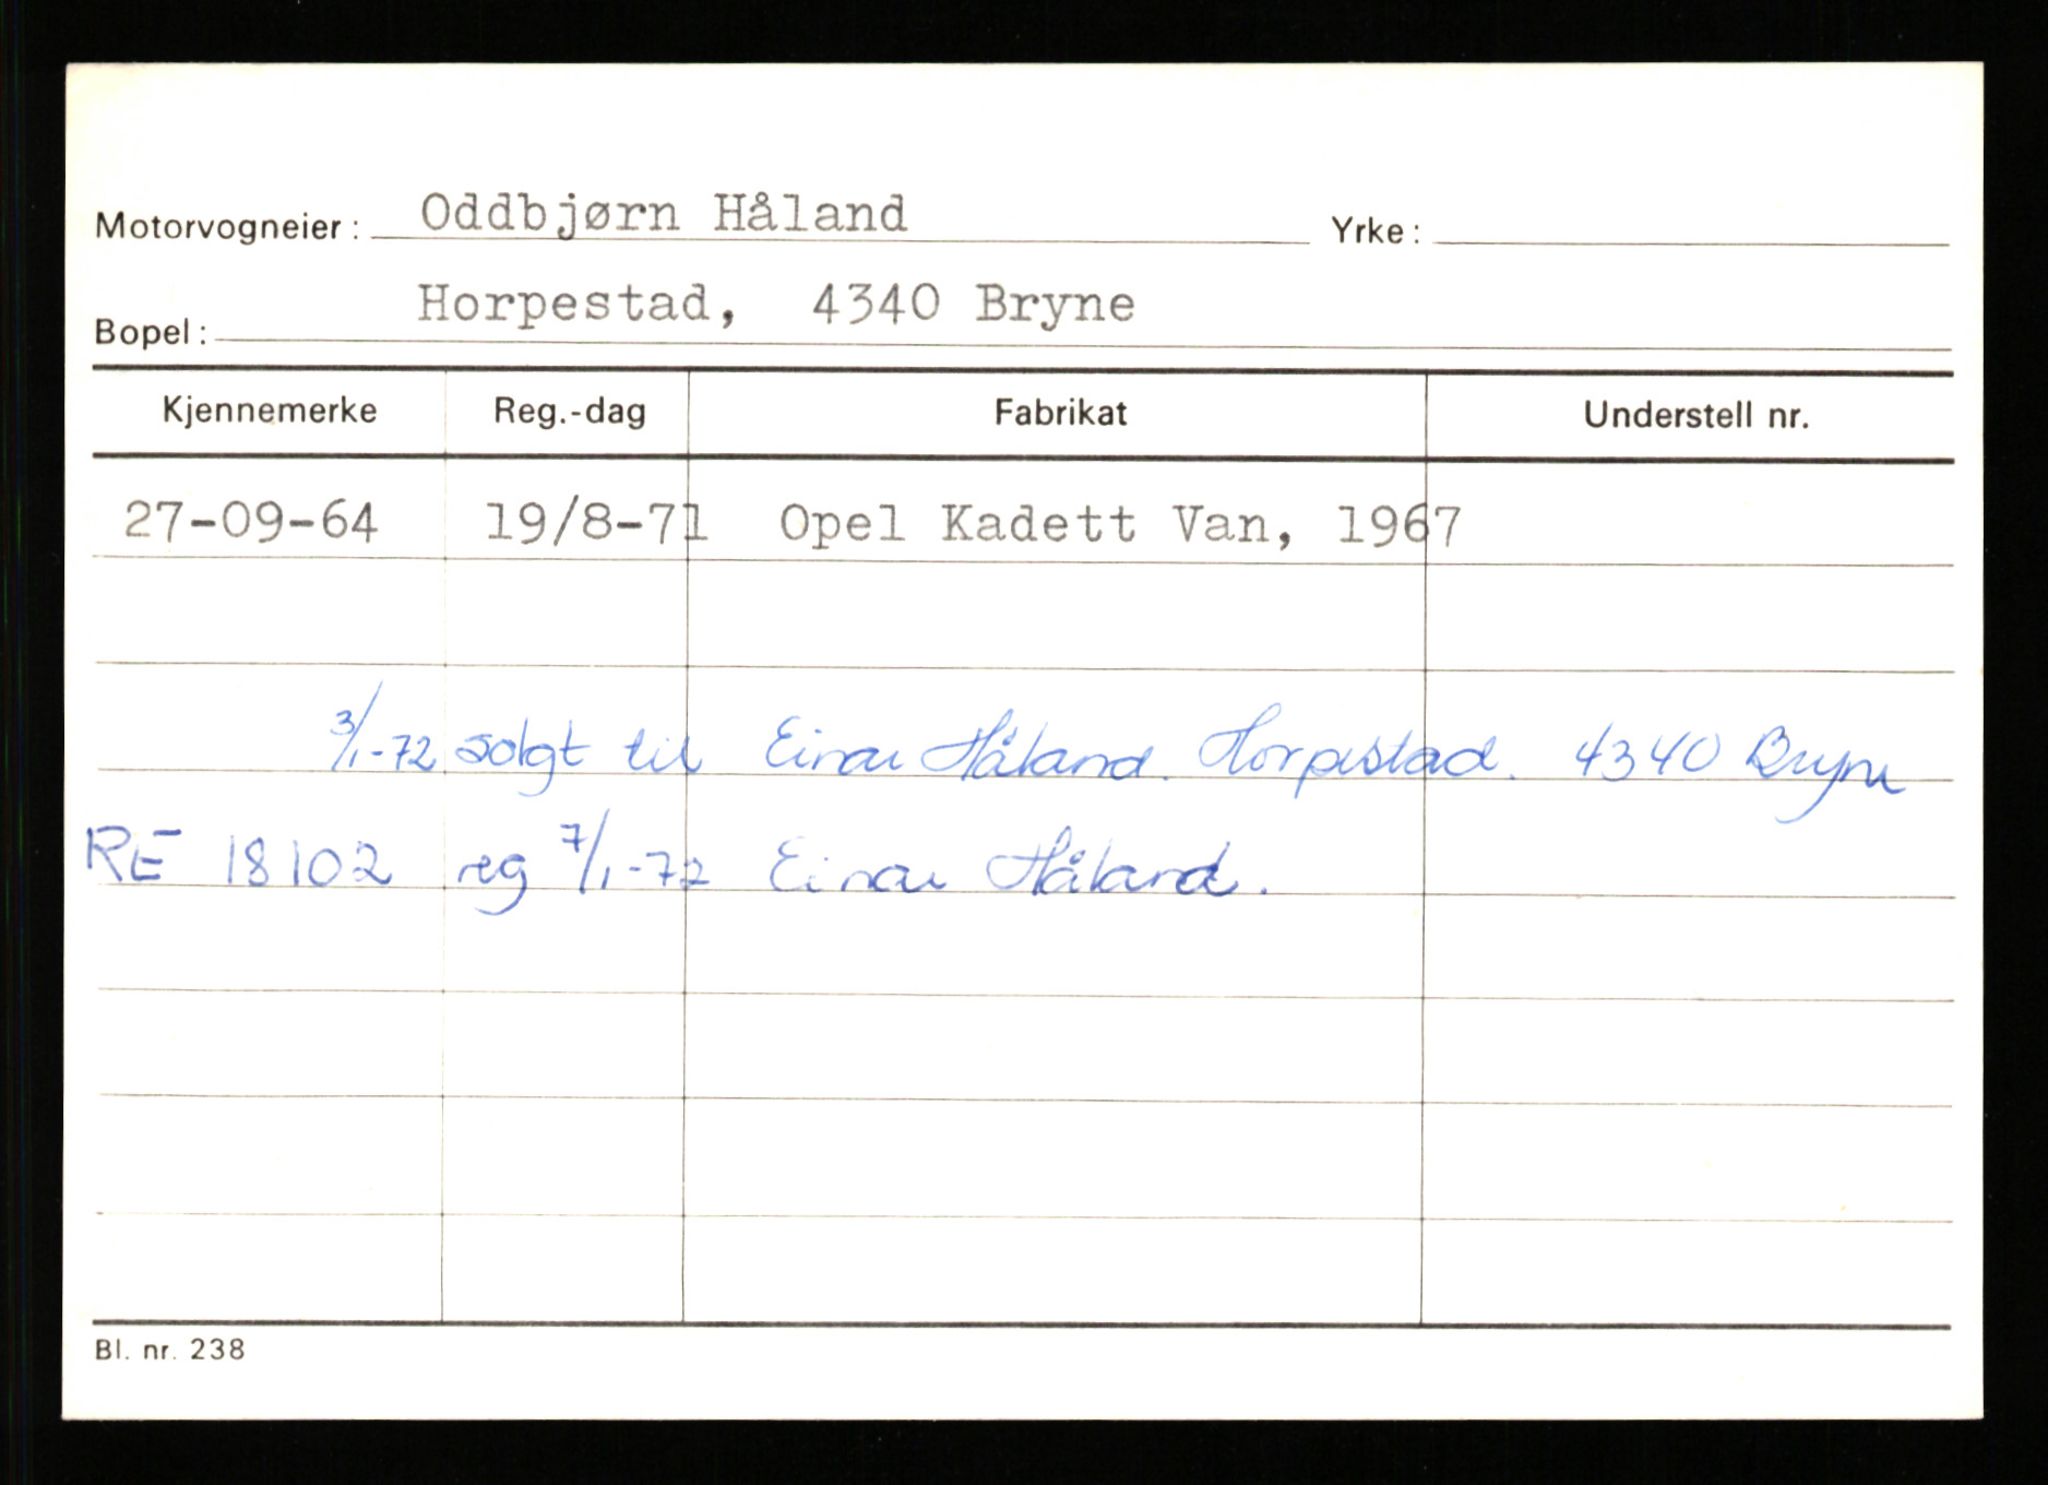 Motorvogneier: Oddbjørn Håland Yrke:
Bopel: Horpestad, 4340 Bryne
Kjennemerke Reg.-dag Fabrikat Understell nr.
27-09-64 19/8-71 Opel Kadett Van, 1967
3/1-72 solgt til Einar Håland. Horpestad. 4340 Bryne
RE 18102 reg 7/1-72 Einar Håland.
Bl. nr. 238